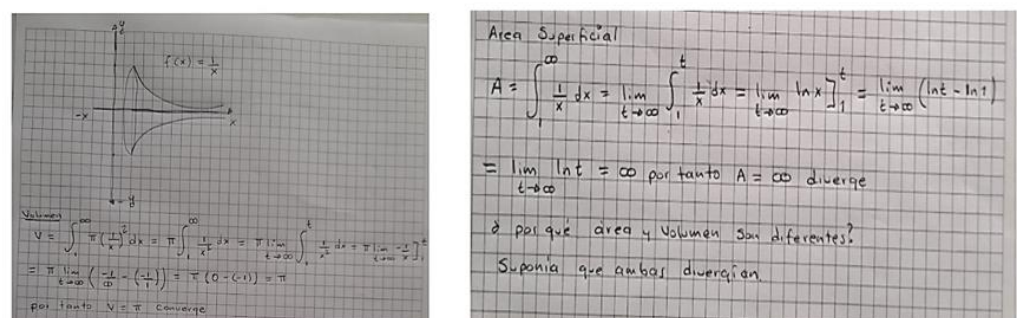 y
f(x) = 1/x
-x
x
-y
Volumen
V = ∫₁^∞ π(1/x)² dx = π ∫₁^∞ 1/x² dx = π lim t→∞ ∫₁^t 1/x² dx = π lim t→∞ -1/x]₁^t
= π lim t→∞ (-1/∞ - (-1/1)) = π(0-(-1)) = π
por tanto V = π converge
Area Superficial
A = ∫₁^∞ 1/x dx = lim t→∞ ∫₁^t 1/x dx = lim t→∞ ln x]₁^t = lim t→∞ (ln t - ln 1)
= lim t→∞ ln t = ∞ por tanto A = ∞ diverge
¿ por qué área y volumen son diferentes?
Suponía que ambas divergían.